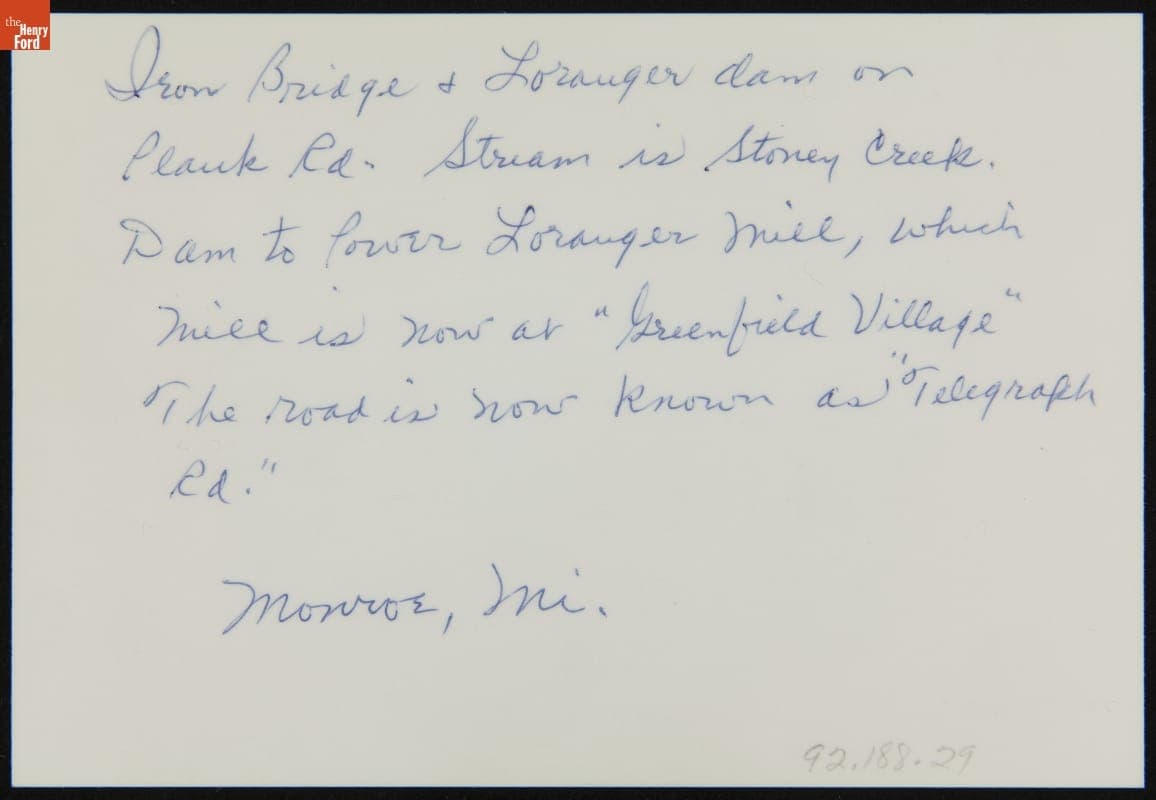 the
Henry
Ford
Iron Bridge & Loranger dam on
Plank Rd. Stream is Stoney Creek.
Dam to Power Loranger Mill, which
Mill is now at "Greenfield Village"
The road is now known as "Telegraph
Rd."
Monroe, Mi.
92.188.29